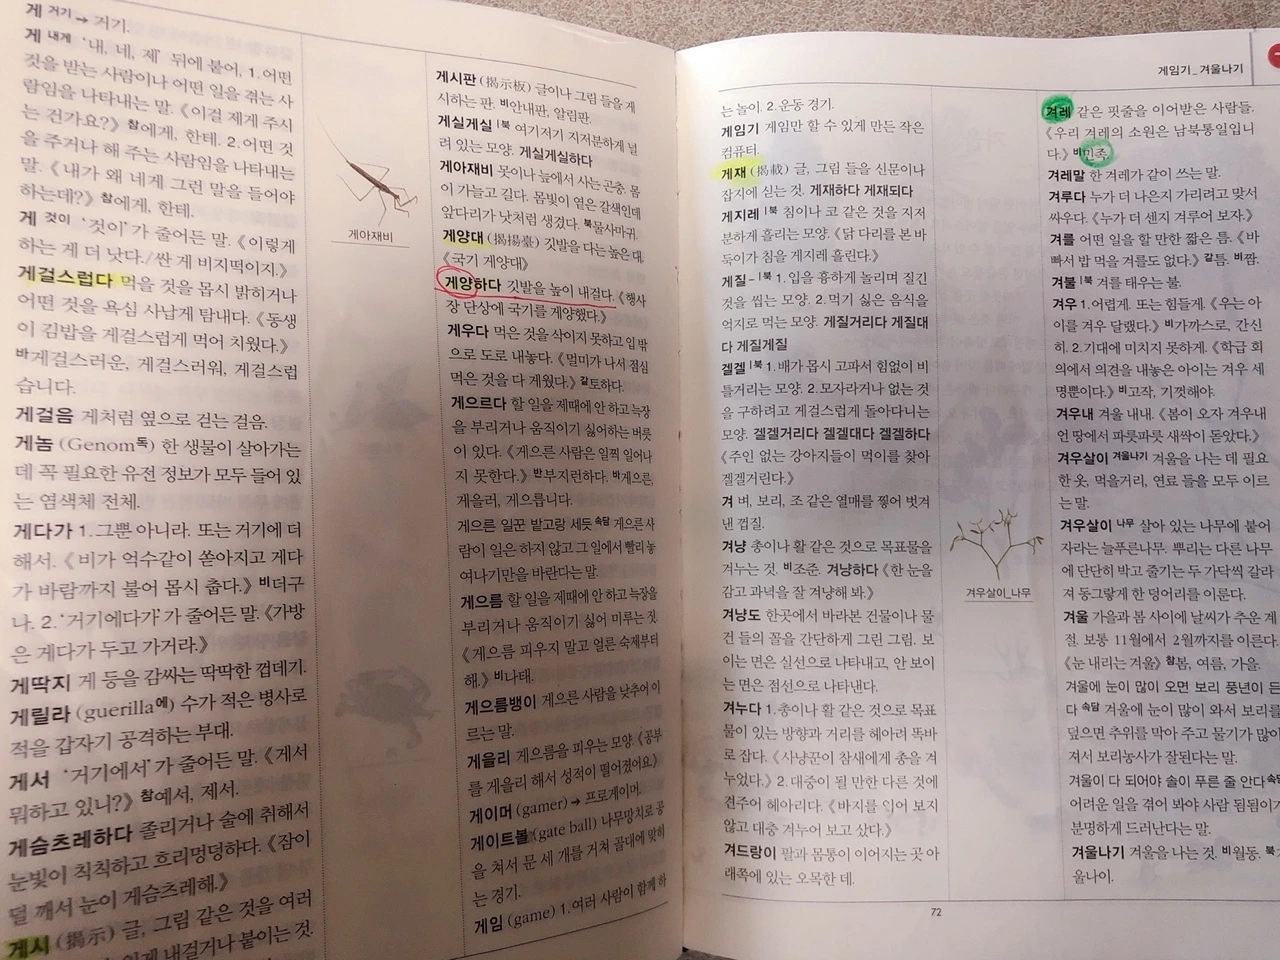 게 거기 → 거기.
게 내게 ‘내, 네, 제’ 뒤에 붙어, 1. 어떤
것을 받는 사람이나 어떤 일을 겪는 사
람임을 나타내는 말. 《이걸 제게 주시
는 건가요?》 참에게, 한테. 2. 어떤 것
을 주거나 해 주는 사람임을 나타내는
말. 《내가 왜 네게 그런 말을 들어야
하는데?》 참에게, 한테.
게 것이 ‘것이’가 줄어든 말. 《이렇게
하는 게 더 낫다./싼 게 비지떡이지.》
게걸스럽다 먹을 것을 몹시 밝히거나
어떤 것을 욕심 사납게 탐내다. 《동생
이 김밥을 게걸스럽게 먹어 치웠다.》
바게걸스러운, 게걸스러워, 게걸스럽
습니다.
게걸음 게처럼 옆으로 걷는 걸음.
게놈 (Genom독) 한 생물이 살아가는
데 꼭 필요한 유전 정보가 모두 들어 있
는 염색체 전체.
게다가 1. 그뿐 아니라. 또는 거기에 더
해서. 《비가 억수같이 쏟아지고 게다
가 바람까지 불어 몹시 춥다.》 비더구
나. 2. ‘거기에다가’가 줄어든 말. 《가방
은 게다가 두고 가거라.》
게딱지 게 등을 감싸는 딱딱한 껍데기.
게릴라 (guerilla에) 수가 적은 병사로
적을 갑자기 공격하는 부대.
게서 ‘거기에서’가 줄어든 말. 《게서
뭐하고 있니?》 참예서, 제서.
게슴츠레하다 졸리거나 술에 취해서
눈빛이 칙칙하고 흐리멍덩하다. 《잠이
덜 깨서 눈이 게슴츠레해.》
게시 (揭示) 글, 그림 같은 것을 여러
내걸거나 붙이는 것.
게아재비
게시판 (揭示板) 글이나 그림 들을 게
시하는 판. 비안내판, 알림판.
게실게실 |북 여기저기 지저분하게 널
려 있는 모양. 게실게실하다
게아재비 못이나 늪에서 사는 곤충. 몸
이 가늘고 길다. 몸빛이 옅은 갈색인데
앞다리가 낫처럼 생겼다. 북물사마귀.
게양대 (揭揚臺) 깃발을 다는 높은 대.
《국기 게양대》
게양하다 깃발을 높이 내걸다. 《행사
장 단상에 국기를 게양했다.》
게우다 먹은 것을 삭이지 못하고 입 밖
으로 도로 내놓다. 《멀미가 나서 점심
먹은 것을 다 게웠다.》 같토하다.
게으르다 할 일을 제때에 안 하고 늑장
을 부리거나 움직이기 싫어하는 버릇
이 있다. 《게으른 사람은 일찍 일어나
지 못한다.》 반부지런하다. 바게으른,
게을러, 게으릅니다.
게으른 일꾼 밭고랑 세듯 속담 게으른 사
람이 일은 하지 않고 그 일에서 빨리 놓
여나기만을 바란다는 말.
게으름 할 일을 제때에 안 하고 늑장을
부리거나 움직이기 싫어 미루는 짓.
《게으름 피우지 말고 얼른 숙제부터
해.》 비나태.
게으름뱅이 게으른 사람을 낮추어 이
르는 말.
게을리 게으름을 피우는 모양. 《공부
를 게을리 해서 성적이 떨어졌어요.》
게이머 (gamer) → 프로게이머.
게이트볼 (gate ball) 나무망치로 공
을 쳐서 문 세 개를 거쳐 골대에 맞히
는 경기.
게임 (game) 1. 여러 사람이 함께 하
게임기_겨울나기
는 놀이. 2. 운동 경기.
게임기 게임만 할 수 있게 만든 작은
컴퓨터.
게재 (揭載) 글, 그림 들을 신문이나
잡지에 싣는 것. 게재하다 게재되다
게지레 |북 침이나 코 같은 것을 지저
분하게 흘리는 모양. 《닭 다리를 본 바
둑이가 침을 게지레 흘린다.》
게질- |북 1. 입을 흉하게 놀리며 질긴
것을 씹는 모양. 2. 먹기 싫은 음식을
억지로 먹는 모양. 게질거리다 게질대
다 게질게질
겔겔 |북 1. 배가 몹시 고파서 힘없이 비
틀거리는 모양. 2. 모자라거나 없는 것
을 구하려고 게걸스럽게 돌아다니는
모양. 겔겔거리다 겔겔대다 겔겔하다
《주인 없는 강아지들이 먹이를 찾아
겔겔거린다.》
겨 벼, 보리, 조 같은 열매를 찧어 벗겨
낸 껍질.
겨냥 총이나 활 같은 것으로 목표물을
겨누는 것. 비조준. 겨냥하다 《한 눈을
감고 과녁을 잘 겨냥해 봐.》
겨냥도 한곳에서 바라본 건물이나 물
건 들의 꼴을 간단하게 그린 그림. 보
이는 면은 실선으로 나타내고, 안 보이
는 면은 점선으로 나타낸다.
겨누다 1. 총이나 활 같은 것으로 목표
물이 있는 방향과 거리를 헤아려 똑바
로 잡다. 《사냥꾼이 참새에게 총을 겨
누었다.》 2. 대중이 될 만한 다른 것에
견주어 헤아리다. 《바지를 입어 보지
않고 대충 겨누어 보고 샀다.》
겨드랑이 팔과 몸통이 이어지는 곳 아
래쪽에 있는 오목한 데.
겨우살이_나무
겨레 같은 핏줄을 이어받은 사람들.
《우리 겨레의 소원은 남북통일입니
다.》 비민족.
겨레말 한 겨레가 같이 쓰는 말.
겨루다 누가 더 나은지 가리려고 맞서
싸우다. 《누가 더 센지 겨루어 보자.》
겨를 어떤 일을 할 만한 짧은 틈. 《바
빠서 밥 먹을 겨를도 없다.》 같틈. 비짬.
겨불 |북 겨를 태우는 불.
겨우 1. 어렵게. 또는 힘들게. 《우는 아
이를 겨우 달랬다.》 비가까스로, 간신
히. 2. 기대에 미치지 못하게. 《학급 회
의에서 의견을 내놓은 아이는 겨우 세
명뿐이다.》 비고작, 기껏해야.
겨우내 겨울 내내. 《봄이 오자 겨우내
언 땅에서 파릇파릇 새싹이 돋았다.》
겨우살이 겨울나기 겨울을 나는 데 필요
한 옷, 먹을거리, 연료 들을 모두 이르
는 말.
겨우살이 나무 살아 있는 나무에 붙어
자라는 늘푸른나무. 뿌리는 다른 나무
에 단단히 박고 줄기는 두 가닥씩 갈라
져 동그랗게 한 덩어리를 이룬다.
겨울 가을과 봄 사이에 날씨가 추운 계
절. 보통 11월에서 2월까지를 이른다.
《눈 내리는 겨울》 참봄, 여름, 가을.
겨울에 눈이 많이 오면 보리 풍년이 든
다 속담 겨울에 눈이 많이 와서 보리를
덮으면 추위를 막아 주고 물기가 많아
져서 보리농사가 잘된다는 말.
겨울이 다 되어야 솔이 푸른 줄 안다 속담
어려운 일을 겪어 봐야 사람 됨됨이가
분명하게 드러난다는 말.
겨울나기 겨울을 나는 것. 비월동. 북
울나이.
72